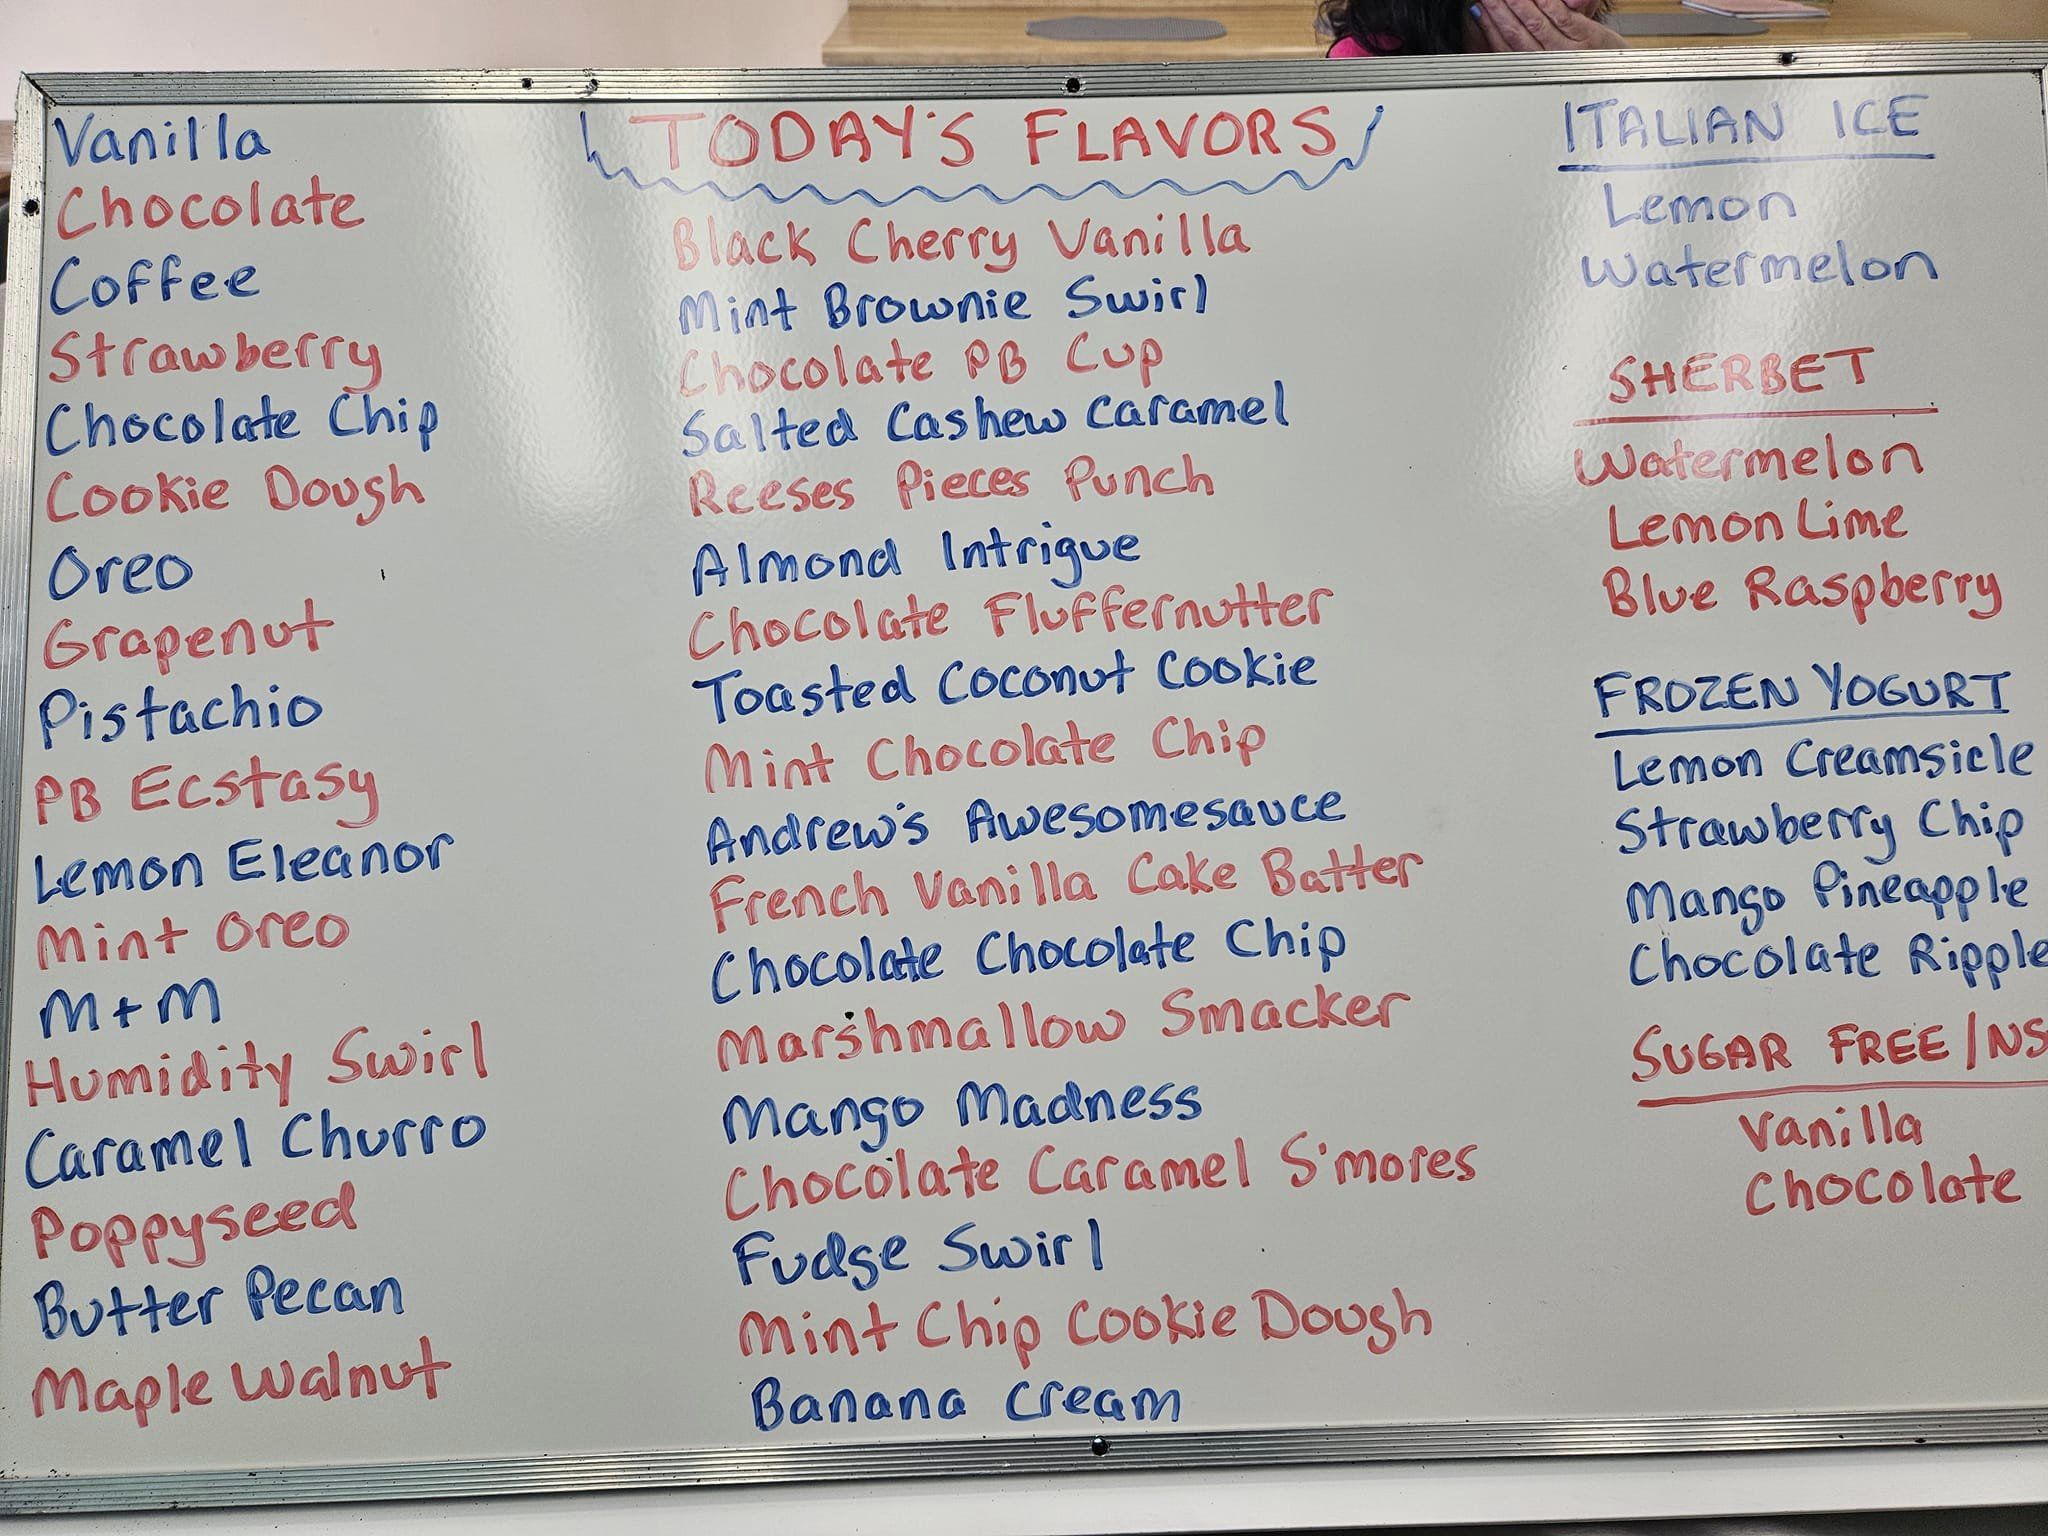 Vanilla
Chocolate
Coffee
Strawberry
Chocolate Chip
Cookie Dough
Oreo
Grapenut
Pistachio
PB Ecstasy
Lemon Eleanor
Mint Oreo
M+M
Humidity Swirl
Caramel Churro
Poppyseed
Butter Pecan
Maple Walnut
TODAY'S FLAVORS
Black Cherry Vanilla
Mint Brownie Swirl
Chocolate PB Cup
Salted Cashew Caramel
Reeses Pieces Punch
Almond Intrigue
Chocolate Fluffernutter
Toasted Coconut Cookie
Mint Chocolate Chip
Andrew's Awesomesauce
French Vanilla Cake Batter
Chocolate Chocolate Chip
Marshmallow Smacker
Mango Madness
Chocolate Caramel S'mores
Fudge Swirl
Mint Chip Cookie Dough
Banana Cream
ITALIAN ICE
Lemon
Watermelon
SHERBET
Watermelon
Lemon Lime
Blue Raspberry
FROZEN YOGURT
Lemon Creamsicle
Strawberry Chip
Mango Pineapple
Chocolate Ripple
SUGAR FREE/NS
Vanilla
Chocolate